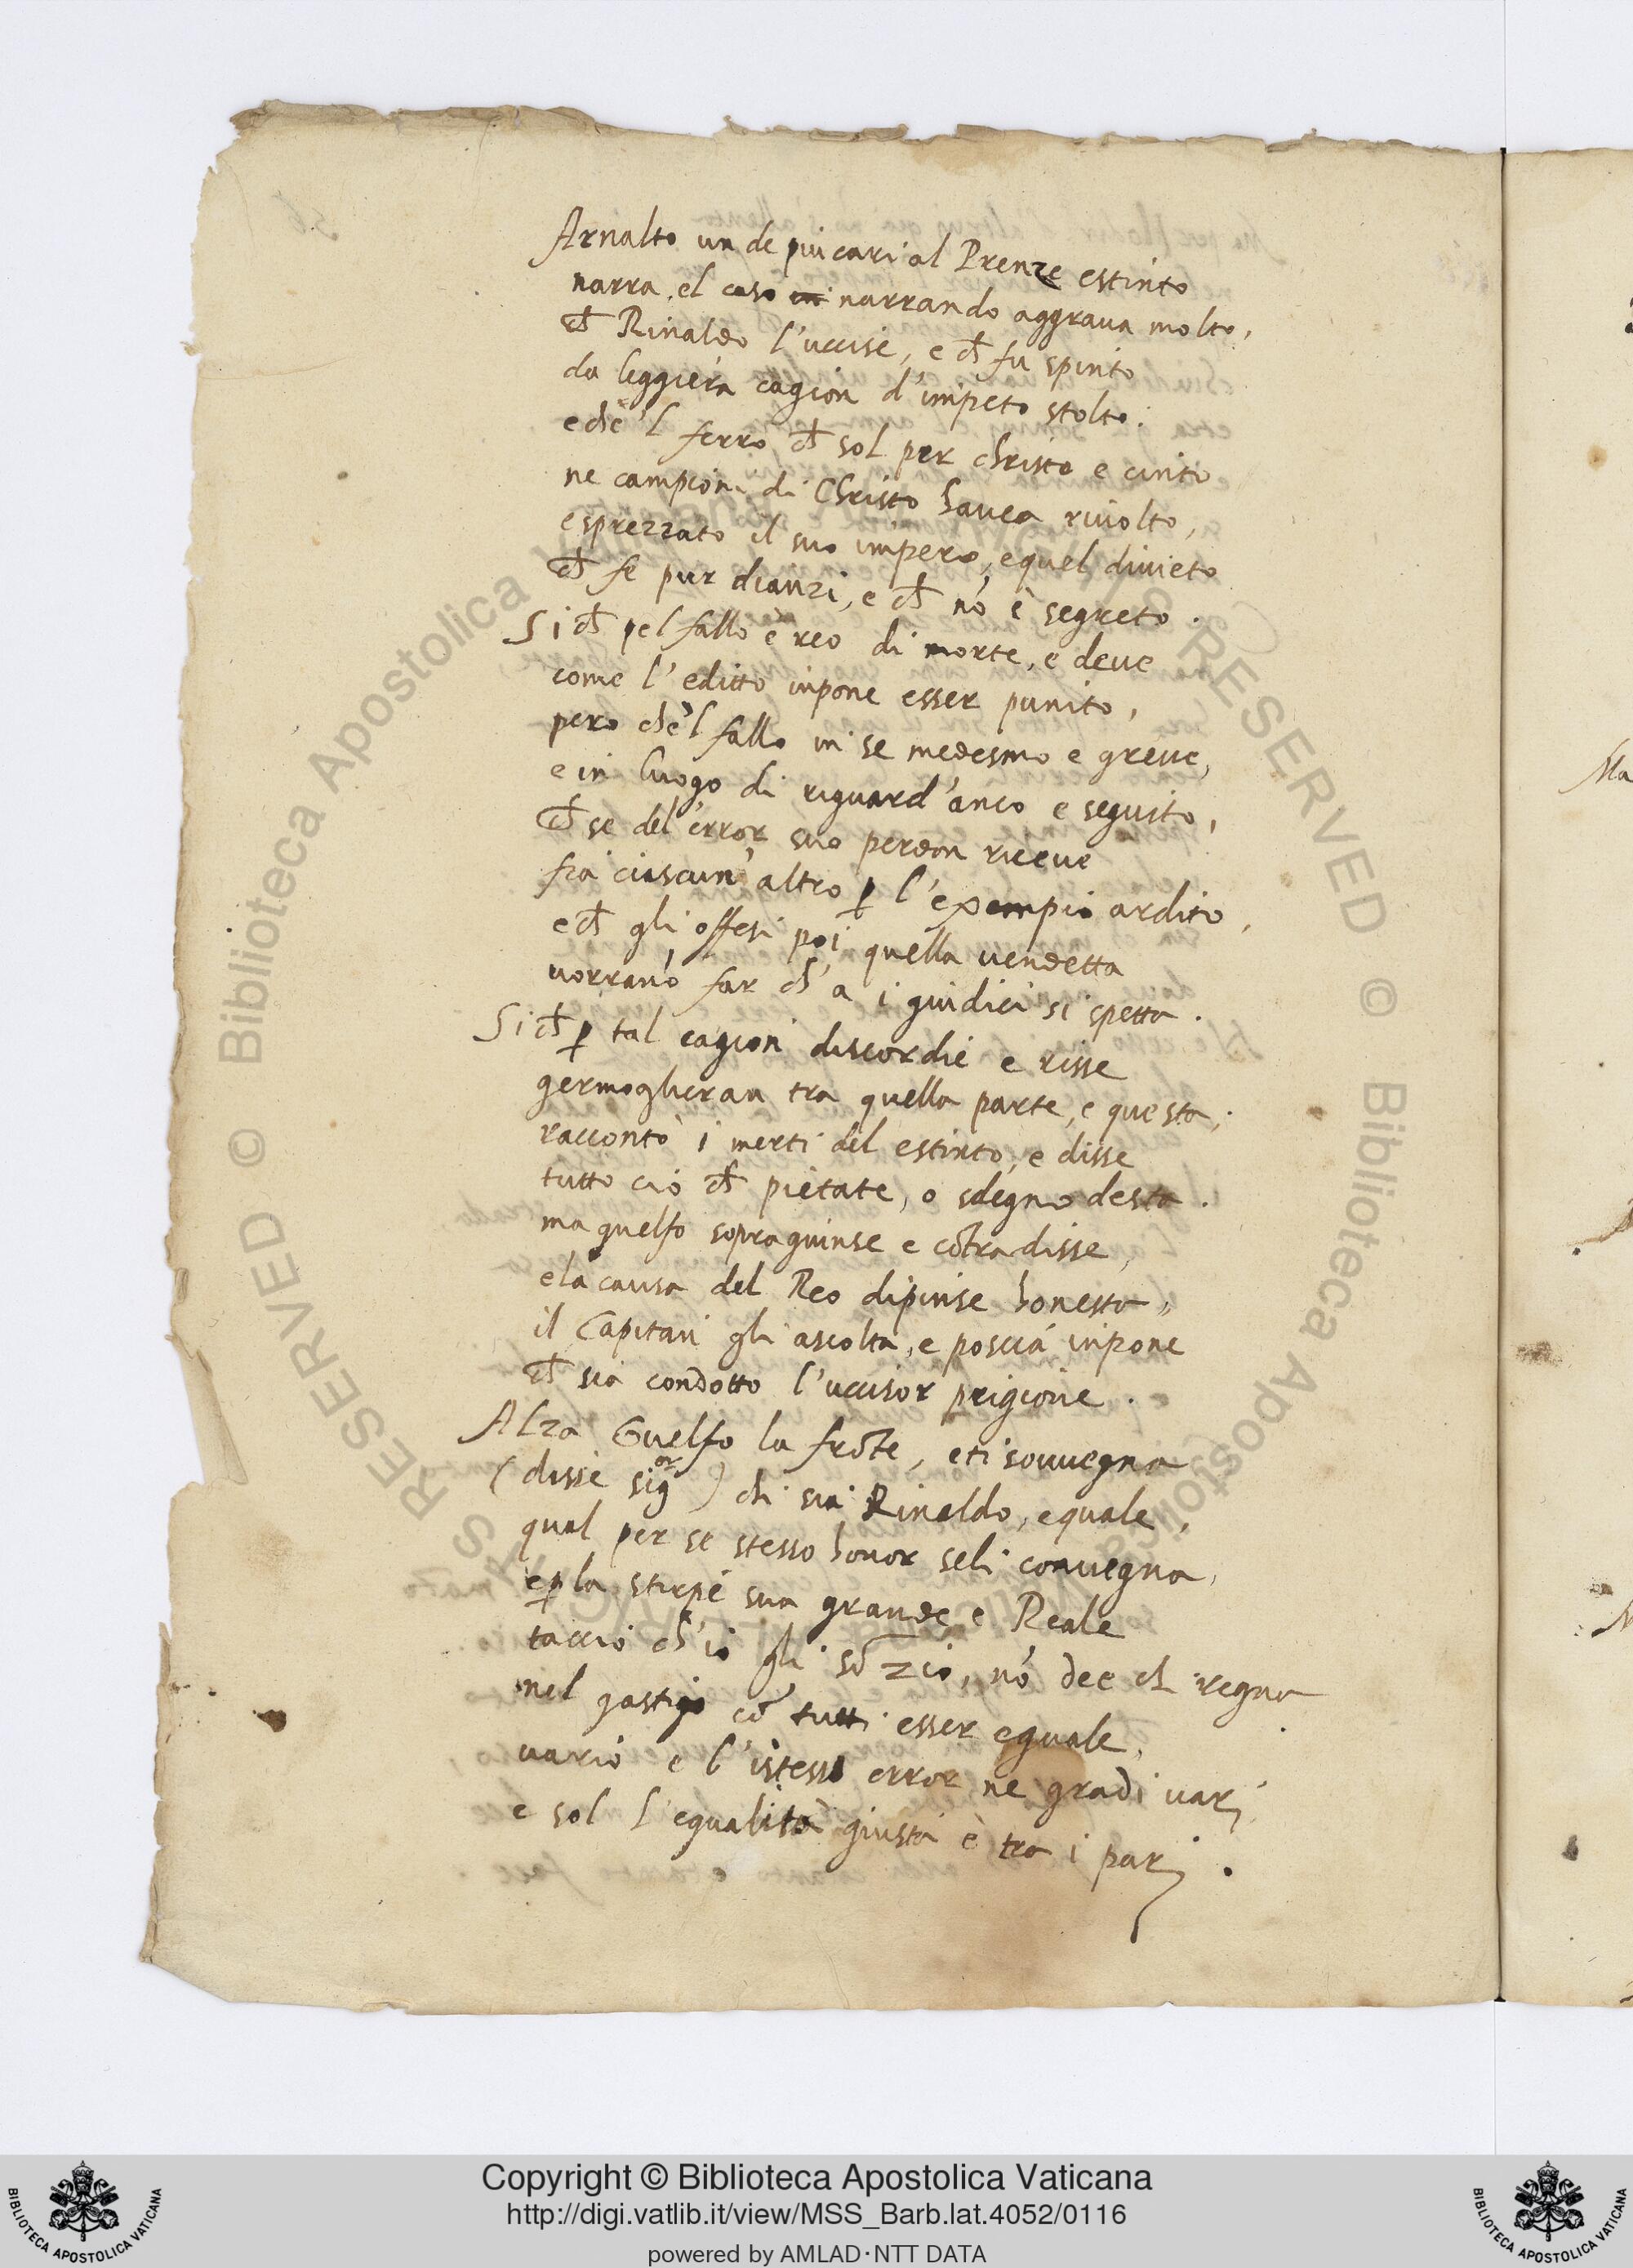 Arnalto un de piu cari al Prenze estinto
narra, el caso in narrando aggraua molto,
ch̃ Rinaldo l'uccise, e ch̃ fu spinto
da leggiera cagion d'impeto stolto:
e che'l ferro, ch̃ sol per christo e cinto
ne campioni di Christo hauea riuolto,
e sprezzato il suo impero, e quel diuieto
ch̃ fe pur dianzi, e ch̃ nō è segreto.
Si ch̃ pel fallo è reo di morte, e deue
come l'editto inpone esser punito,
pero che'l fallo in se medesmo e greue,
e in luogo di riguard'anco e seguito,
ch̃ se del'error suo perdon riceue
fia ciascun'altro ꝑ l'exempio ardito,
e ch̃ gli offesi poi quella uendetta
uorranō far ch̃ a i giudici si spetta.
Si ch̃ ꝑ tal cagion discordie e risse
germoglieran tra quella parte, e questa;
raccontò i merti del estinto, e disse
tutto ciò ch̃ pietate, o sdegno desta.
ma guelfo sopraguinse e cōtradisse,
e la causa del Reo dipinse honesta,
il Capitan gli ascolta, e poscia inpone
ch̃ sia condotto l'uccisor prigione.
Alza Guelfo la frōte, e ti souuegna
(disse sigor) chi sia Rinaldo, e quale,
qual per se stesso honor seli conuegna,
e ꝑ la stirpe sua grande e Reale
taccio ch'io gli sō zio, nō dee chi regna
nel gastigo cō tutti esser eguale,
uario e l'istesso error ne gradi uarij
e sol l'egualità giusta è tra i parj.
Ma
BIBLIOTECA APOSTOLICA VATICANA
Copyright © Biblioteca Apostolica Vaticana
http://digi.vatlib.it/view/MSS_Barb.lat.4052/0116
powered by AMLAD·NTT DATA
BIBLIOTECA APOSTOLICA VATICANA